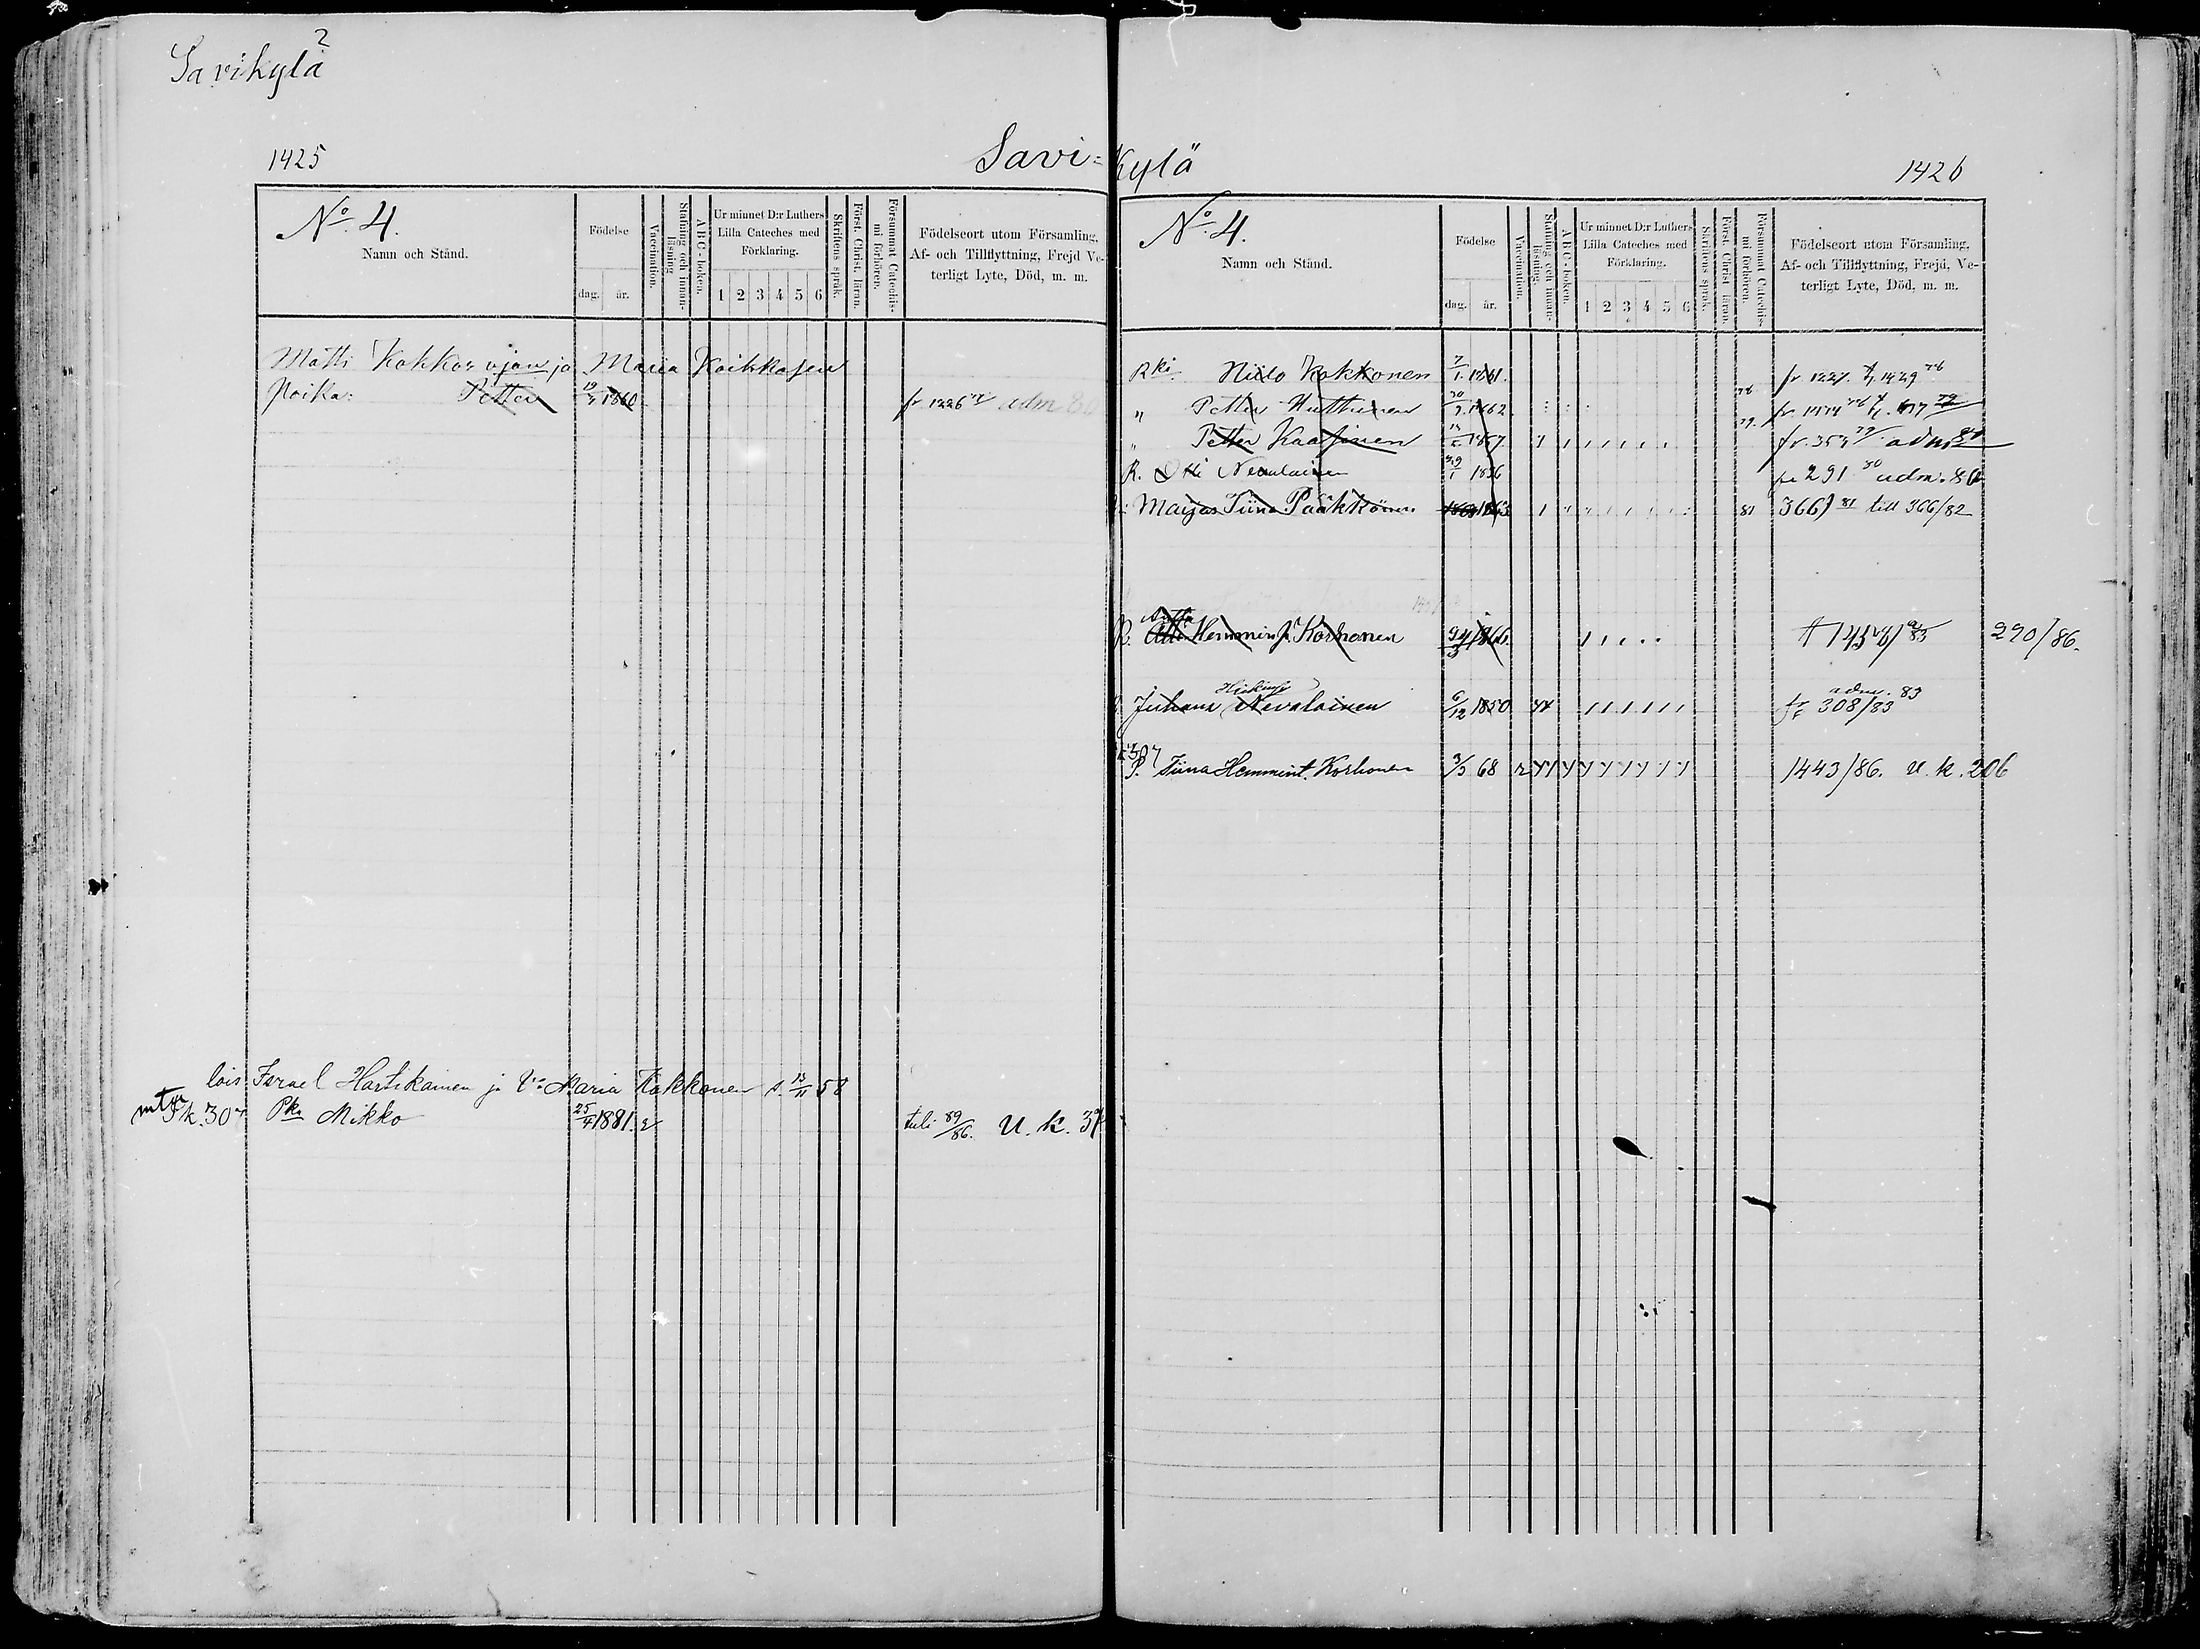 Savikylä 2
1425
Savi=
No. 4.
Namn och Stånd.
Födelse
dag.
år.
Vaccination.
Stafning och innan-
läsning
ABC-boken.
Ur minnet D:r Luthers
Lilla Cateches med
Förklaring.
1 2 3 4 5 6
Skriftens språk.
Först. Christ. läran.
Försummat Catechis-
mi förhören.
Födelseort utom Församling,
Af- och Tillflyttning, Frejd Ve-
terligt Lyte, Död, m. m.
Matti Kokkos ja Maria Koikkasen
Poika: Petter 19/7 1860 fr 1226 adm 80
lois. Israel Hartikainen ja V: Maria Kokkonen s. 13/11 58
k. 307 Pka Mikko 25/4 1881. tuli 89/86. U. K.
kylä
1426
No. 4.
Namn och Stånd.
Födelse
dag.
år.
Vaccination.
Stafning och innan-
läsning.
ABC-boken.
Ur minnet D:r Luthers
Lilla Cateches med
Förklaring.
1 2 3 4 5 6
Skriftens språk.
Först. Christ. läran.
Försummat Catechis-
mi förhören.
Födelseort utom Församling,
Af- och Tillflyttning, Frejd, Ve-
terligt Lyte, Död, m. m.
Rki. Niilo Kokkonen 7/1. 1861. fr 1227. 1429
" Petter Huttunen 1862 79. fr
" Petter Kaasinen 1857. fr. adm
R. Olli Nevalainen 1836 fr 291 80 adm. 80
Maija Tiina Pääkkönen 1863 81 366) 81 till 366/82
R. Hemminki Korhonen 24/3 1866. 290/86.
Juhana Nevalainen 6/12 1850 adm. 83
fr 308/83
307
P. Tiina Hemmint. Korhonen 68 1443/86. U. K. 206